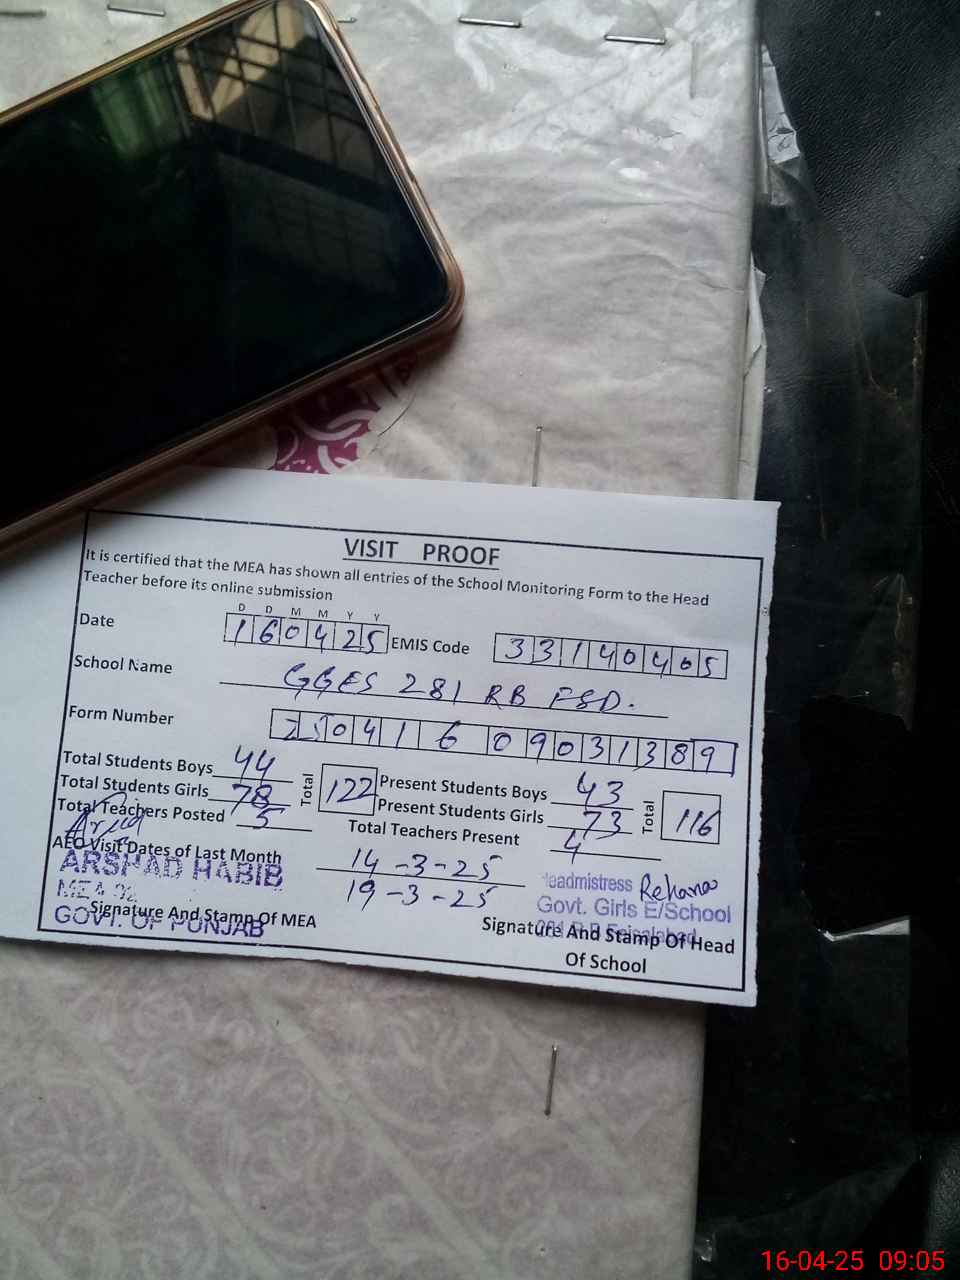 VISIT PROOF
It is certified that the MEA has shown all entries of the School Monitoring Form to the Head
Teacher before its online submission
D D M M Y Y
Date 160425 EMIS Code 33140405
School Name GGES 281 RB FSD.
Form Number 25041609031389
Total Students Boys 44 Total 122 Present Students Boys 43 Total 116
Total Students Girls 78 Present Students Girls 73
Total Teachers Posted 5 Total Teachers Present 4
AEO Visit Dates of Last Month 14-3-25
19-3-25
ARSHAD HABIB
GOVT. OF PUNJAB
Signature And Stamp Of MEA
Headmistress Rehana
Govt. Girls E/School
Signature And Stamp Of Head
Of School
16-04-25 09:05